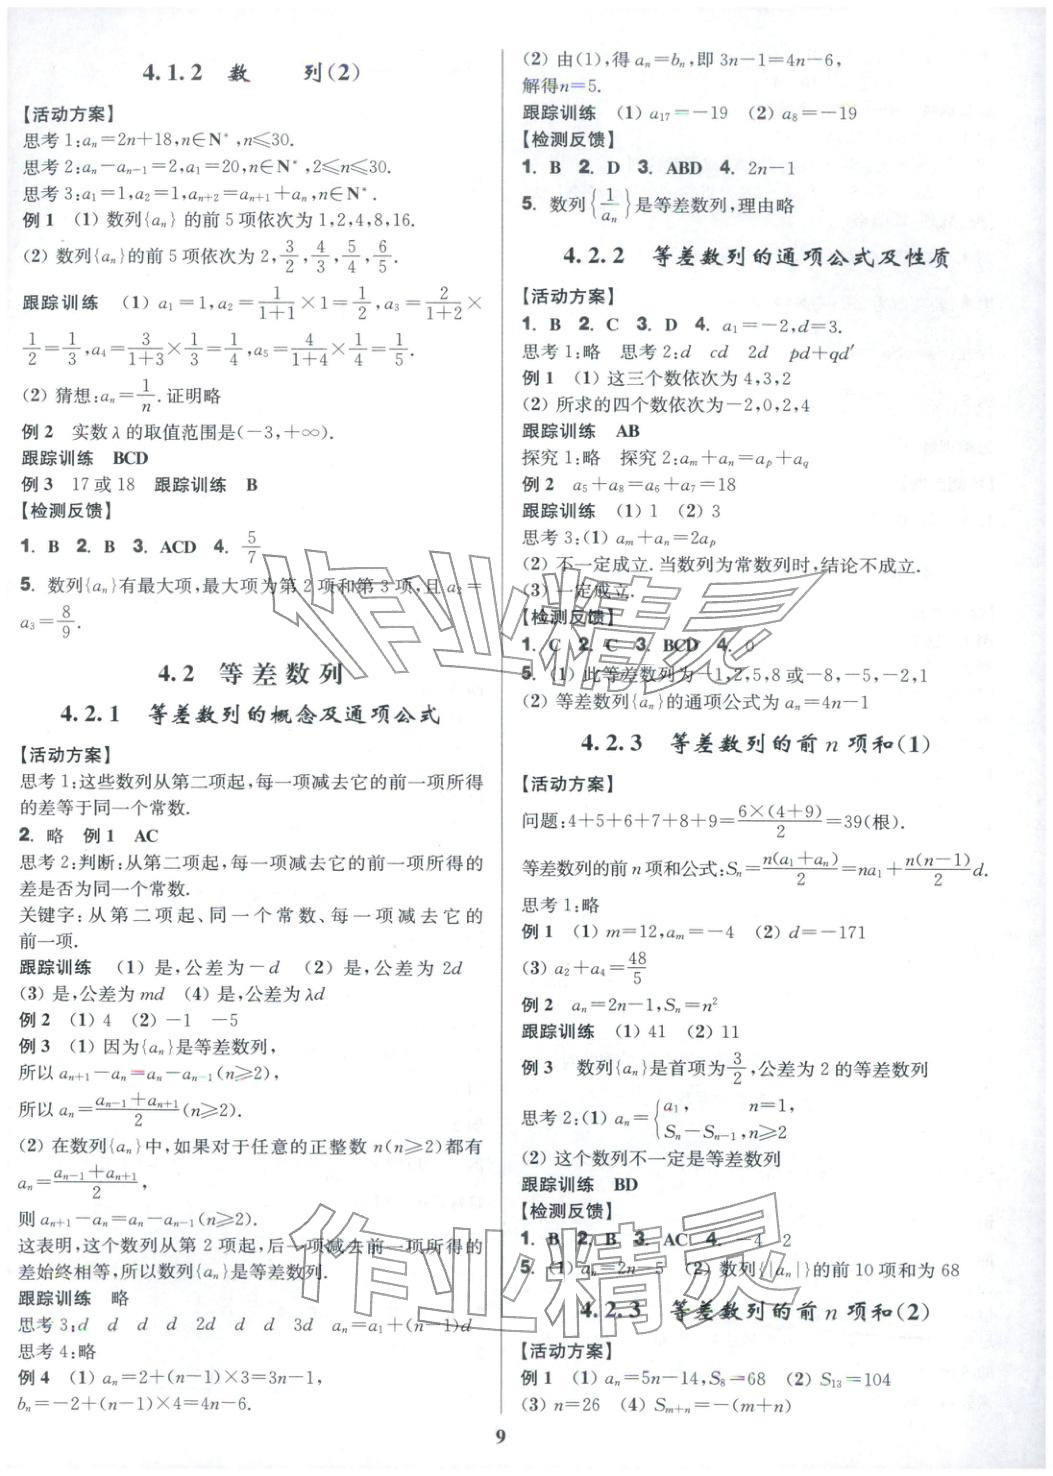 4.1.2 数 列(2)
【活动方案】
思考 1:aₙ=2n+18,n∈N*,n≤30.
思考 2:aₙ-aₙ₋₁=2,a₁=20,n∈N*,2≤n≤30.
思考 3:a₁=1,a₂=1,aₙ₊₂=aₙ₊₁+aₙ,n∈N*.
例 1 (1) 数列{aₙ}的前 5 项依次为 1,2,4,8,16.
(2) 数列{aₙ}的前 5 项依次为 2,3/2,4/3,5/4,6/5.
跟踪训练 (1) a₁=1,a₂=1/(1+1)×1=1/2,a₃=2/(1+2)×
1/2=1/3,a₄=3/(1+3)×1/3=1/4,a₅=4/(1+4)×1/4=1/5.
(2) 猜想:aₙ=1/n.证明略
例 2 实数 λ 的取值范围是(-3,+∞).
跟踪训练 BCD
例 3 17 或 18 跟踪训练 B
【检测反馈】
1. B 2. B 3. ACD 4. 5/7
5. 数列{aₙ}有最大项,最大项为第 2 项和第 3 项,且 a₂=
a₃=8/9.
4.2 等差数列
4.2.1 等差数列的概念及通项公式
【活动方案】
思考 1:这些数列从第二项起,每一项减去它的前一项所得
的差等于同一个常数.
2. 略 例 1 AC
思考 2:判断:从第二项起,每一项减去它的前一项所得的
差是否为同一个常数.
关键字:从第二项起、同一个常数、每一项减去它的
前一项.
跟踪训练 (1) 是,公差为-d (2) 是,公差为 2d
(3) 是,公差为 md (4) 是,公差为 λd
例 2 (1) 4 (2) -1 -5
例 3 (1) 因为{aₙ}是等差数列,
所以 aₙ₊₁-aₙ=aₙ-aₙ₋₁(n≥2),
所以 aₙ=(aₙ₋₁+aₙ₊₁)/2(n≥2).
(2) 在数列{aₙ}中,如果对于任意的正整数 n(n≥2)都有
aₙ=(aₙ₋₁+aₙ₊₁)/2,
则 aₙ₊₁-aₙ=aₙ-aₙ₋₁(n≥2).
这表明,这个数列从第 2 项起,后一项减去前一项所得的
差始终相等,所以数列{aₙ}是等差数列.
跟踪训练 略
思考 3:d d d d 2d d d 3d aₙ=a₁+(n-1)d
思考 4:略
例 4 (1) aₙ=2+(n-1)×3=3n-1,
bₙ=-2+(n-1)×4=4n-6.
(2) 由(1),得 aₙ=bₙ,即 3n-1=4n-6,
解得n=5.
跟踪训练 (1) a₁₇=-19 (2) a₈=-19
【检测反馈】
1. B 2. D 3. ABD 4. 2n-1
5. 数列{1/aₙ}是等差数列,理由略
4.2.2 等差数列的通项公式及性质
【活动方案】
1. B 2. C 3. D 4. a₁=-2,d=3.
思考 1:略 思考 2:d cd 2d pd+qd′
例 1 (1) 这三个数依次为 4,3,2
(2) 所求的四个数依次为-2,0,2,4
跟踪训练 AB
探究 1:略 探究 2:aₘ+aₙ=aₚ+a_q
例 2 a₅+a₈=a₆+a₇=18
跟踪训练 (1) 1 (2) 3
思考 3:(1) aₘ+aₙ=2aₚ
(2) 不一定成立.当数列为常数列时,结论不成立.
(3) 一定成立.
【检测反馈】
1. C 2. C 3. BCD 4. 0
5. (1) 此等差数列为-1,2,5,8 或-8,-5,-2,1
(2) 等差数列{aₙ}的通项公式为 aₙ=4n-1
4.2.3 等差数列的前 n 项和(1)
【活动方案】
问题:4+5+6+7+8+9=6×(4+9)/2=39(根).
等差数列的前 n 项和公式:Sₙ=n(a₁+aₙ)/2=na₁+n(n-1)/2 d.
思考 1:略
例 1 (1) m=12,aₘ=-4 (2) d=-171
(3) a₂+a₄=48/5
例 2 aₙ=2n-1,Sₙ=n²
跟踪训练 (1) 41 (2) 11
例 3 数列{aₙ}是首项为3/2,公差为 2 的等差数列
思考 2:(1) aₙ={a₁, n=1,
Sₙ-Sₙ₋₁,n≥2
(2) 这个数列不一定是等差数列
跟踪训练 BD
【检测反馈】
1. B 2. B 3. AC 4. -4 2
5. (1) aₙ=2n-5 (2) 数列{|aₙ|}的前 10 项和为 68
4.2.3 等差数列的前 n 项和(2)
【活动方案】
例 1 (1) aₙ=5n-14,S₈=68 (2) S₁₃=104
(3) n=26 (4) Sₘ₊ₙ=-(m+n)
9
作业精灵
作业精灵